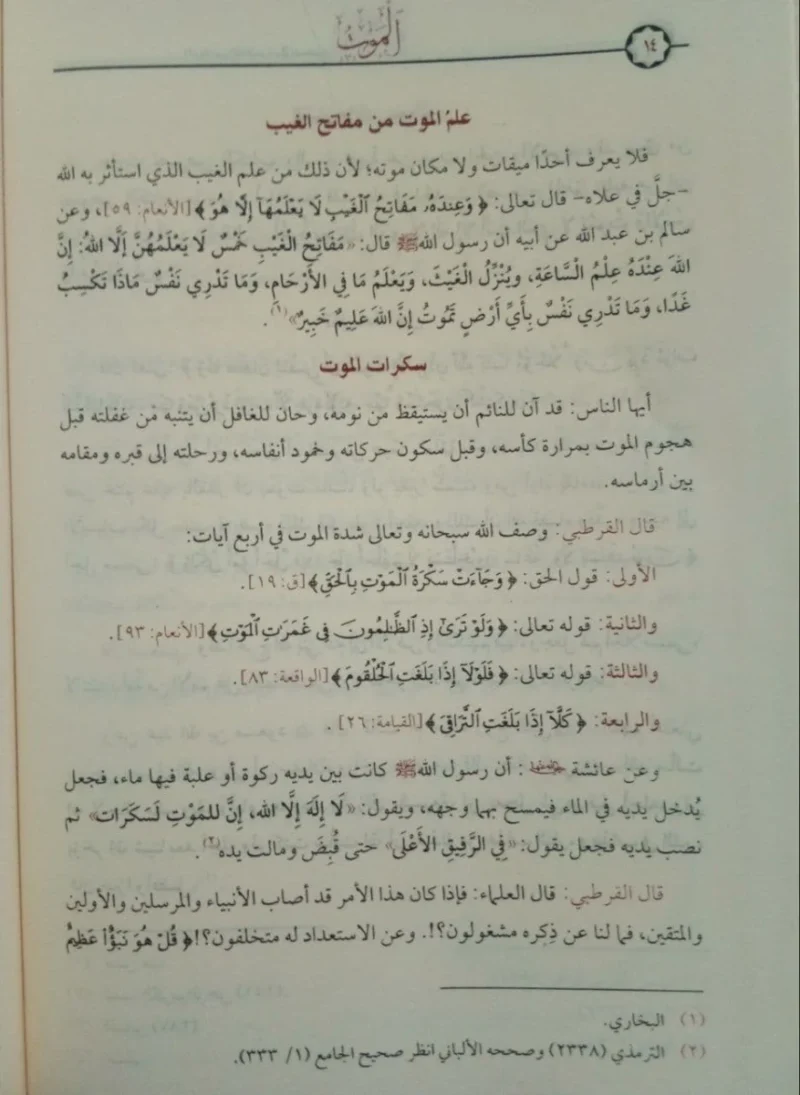 الموت
١٤
علمُ الموت من مفاتح الغيب
فلا يعرف أحدًا ميقات ولا مكان موته؛ لأن ذلك من علم الغيب الذي استأثر به الله
-جلَّ في علاه- قال تعالى: ﴿ وَعِندَهُۥ مَفَاتِحُ ٱلْغَيْبِ لَا يَعْلَمُهَآ إِلَّا هُوَ ﴾[الأنعام: ٥٩]، وعن
سالم بن عبد الله عن أبيه أن رسول الله ﷺ قال: «مَفَاتِحُ الْغَيْبِ خَمْسٌ لَا يَعْلَمُهُنَّ إِلَّا اللهُ: إِنَّ
اللهَ عِنْدَهُ عِلْمُ السَّاعَةِ، ويُنْزِّلُ الْغَيْثَ، وَيَعْلَمُ مَا فِي الأَرْحَامِ، وَمَا تَدْرِي نَفْسٌ مَاذَا تَكْسِبُ
غَدًا، وَمَا تَدْرِي نَفْسٌ بِأَيِّ أَرْضٍ تَمُوتُ إِنَّ اللهَ عَلِيمٌ خَبِيرٌ»(١).
سكرات الموت
أيها الناس: قد آن للنائم أن يستيقظ من نومه، وحان للغافل أن يتنبه من غفلته قبل
هجوم الموت بمرارة كأسه، وقبل سكون حركاته وخمود أنفاسه، ورحلته إلى قبره ومقامه
بين أرماسه.
قال القرطبي: وصف الله سبحانه وتعالى شدة الموت في أربع آيات:
الأولى: قول الحق: ﴿ وَجَآءَتْ سَكْرَةُ ٱلْمَوْتِ بِٱلْحَقِّ ﴾[ق: ١٩].
والثانية: قوله تعالى: ﴿ وَلَوْ تَرَىٰٓ إِذِ ٱلظَّٰلِمُونَ فِى غَمَرَٰتِ ٱلْمَوْتِ ﴾[الأنعام: ٩٣].
والثالثة: قوله تعالى: ﴿ فَلَوْلَآ إِذَا بَلَغَتِ ٱلْحُلْقُومَ ﴾[الواقعة: ٨٣].
والرابعة: ﴿ كَلَّآ إِذَا بَلَغَتِ ٱلتَّرَاقِىَ ﴾[القيامة: ٢٦] .
وعن عائشة رضي الله عنها : أن رسول الله ﷺ كانت بين يديه ركوة أو علبة فيها ماء، فجعل
يُدخل يديه في الماء فيمسح بهما وجهه، ويقول: «لَا إِلَهَ إِلَّا الله، إِنَّ للمَوْتِ لَسَكَرَات» ثم
نصب يديه فجعل يقول: «فِي الرَّفِيقِ الأَعْلَى» حتى قُبِضَ ومالت يده(٢).
قال القرطبي: قال العلماء: فإذا كان هذا الأمر قد أصاب الأنبياء والمرسلين والأولين
والمتقين، فما لنا عن ذِكره مشغولون؟!. وعن الاستعداد له متخلفون؟!﴿ قُلْ هُوَ نَبَؤٌا عَظِيمٌ
(١) البخاري.
(٢) الترمذي (٢٣٣٨) وصححه الألباني انظر صحيح الجامع (١/ ٣٣٣).